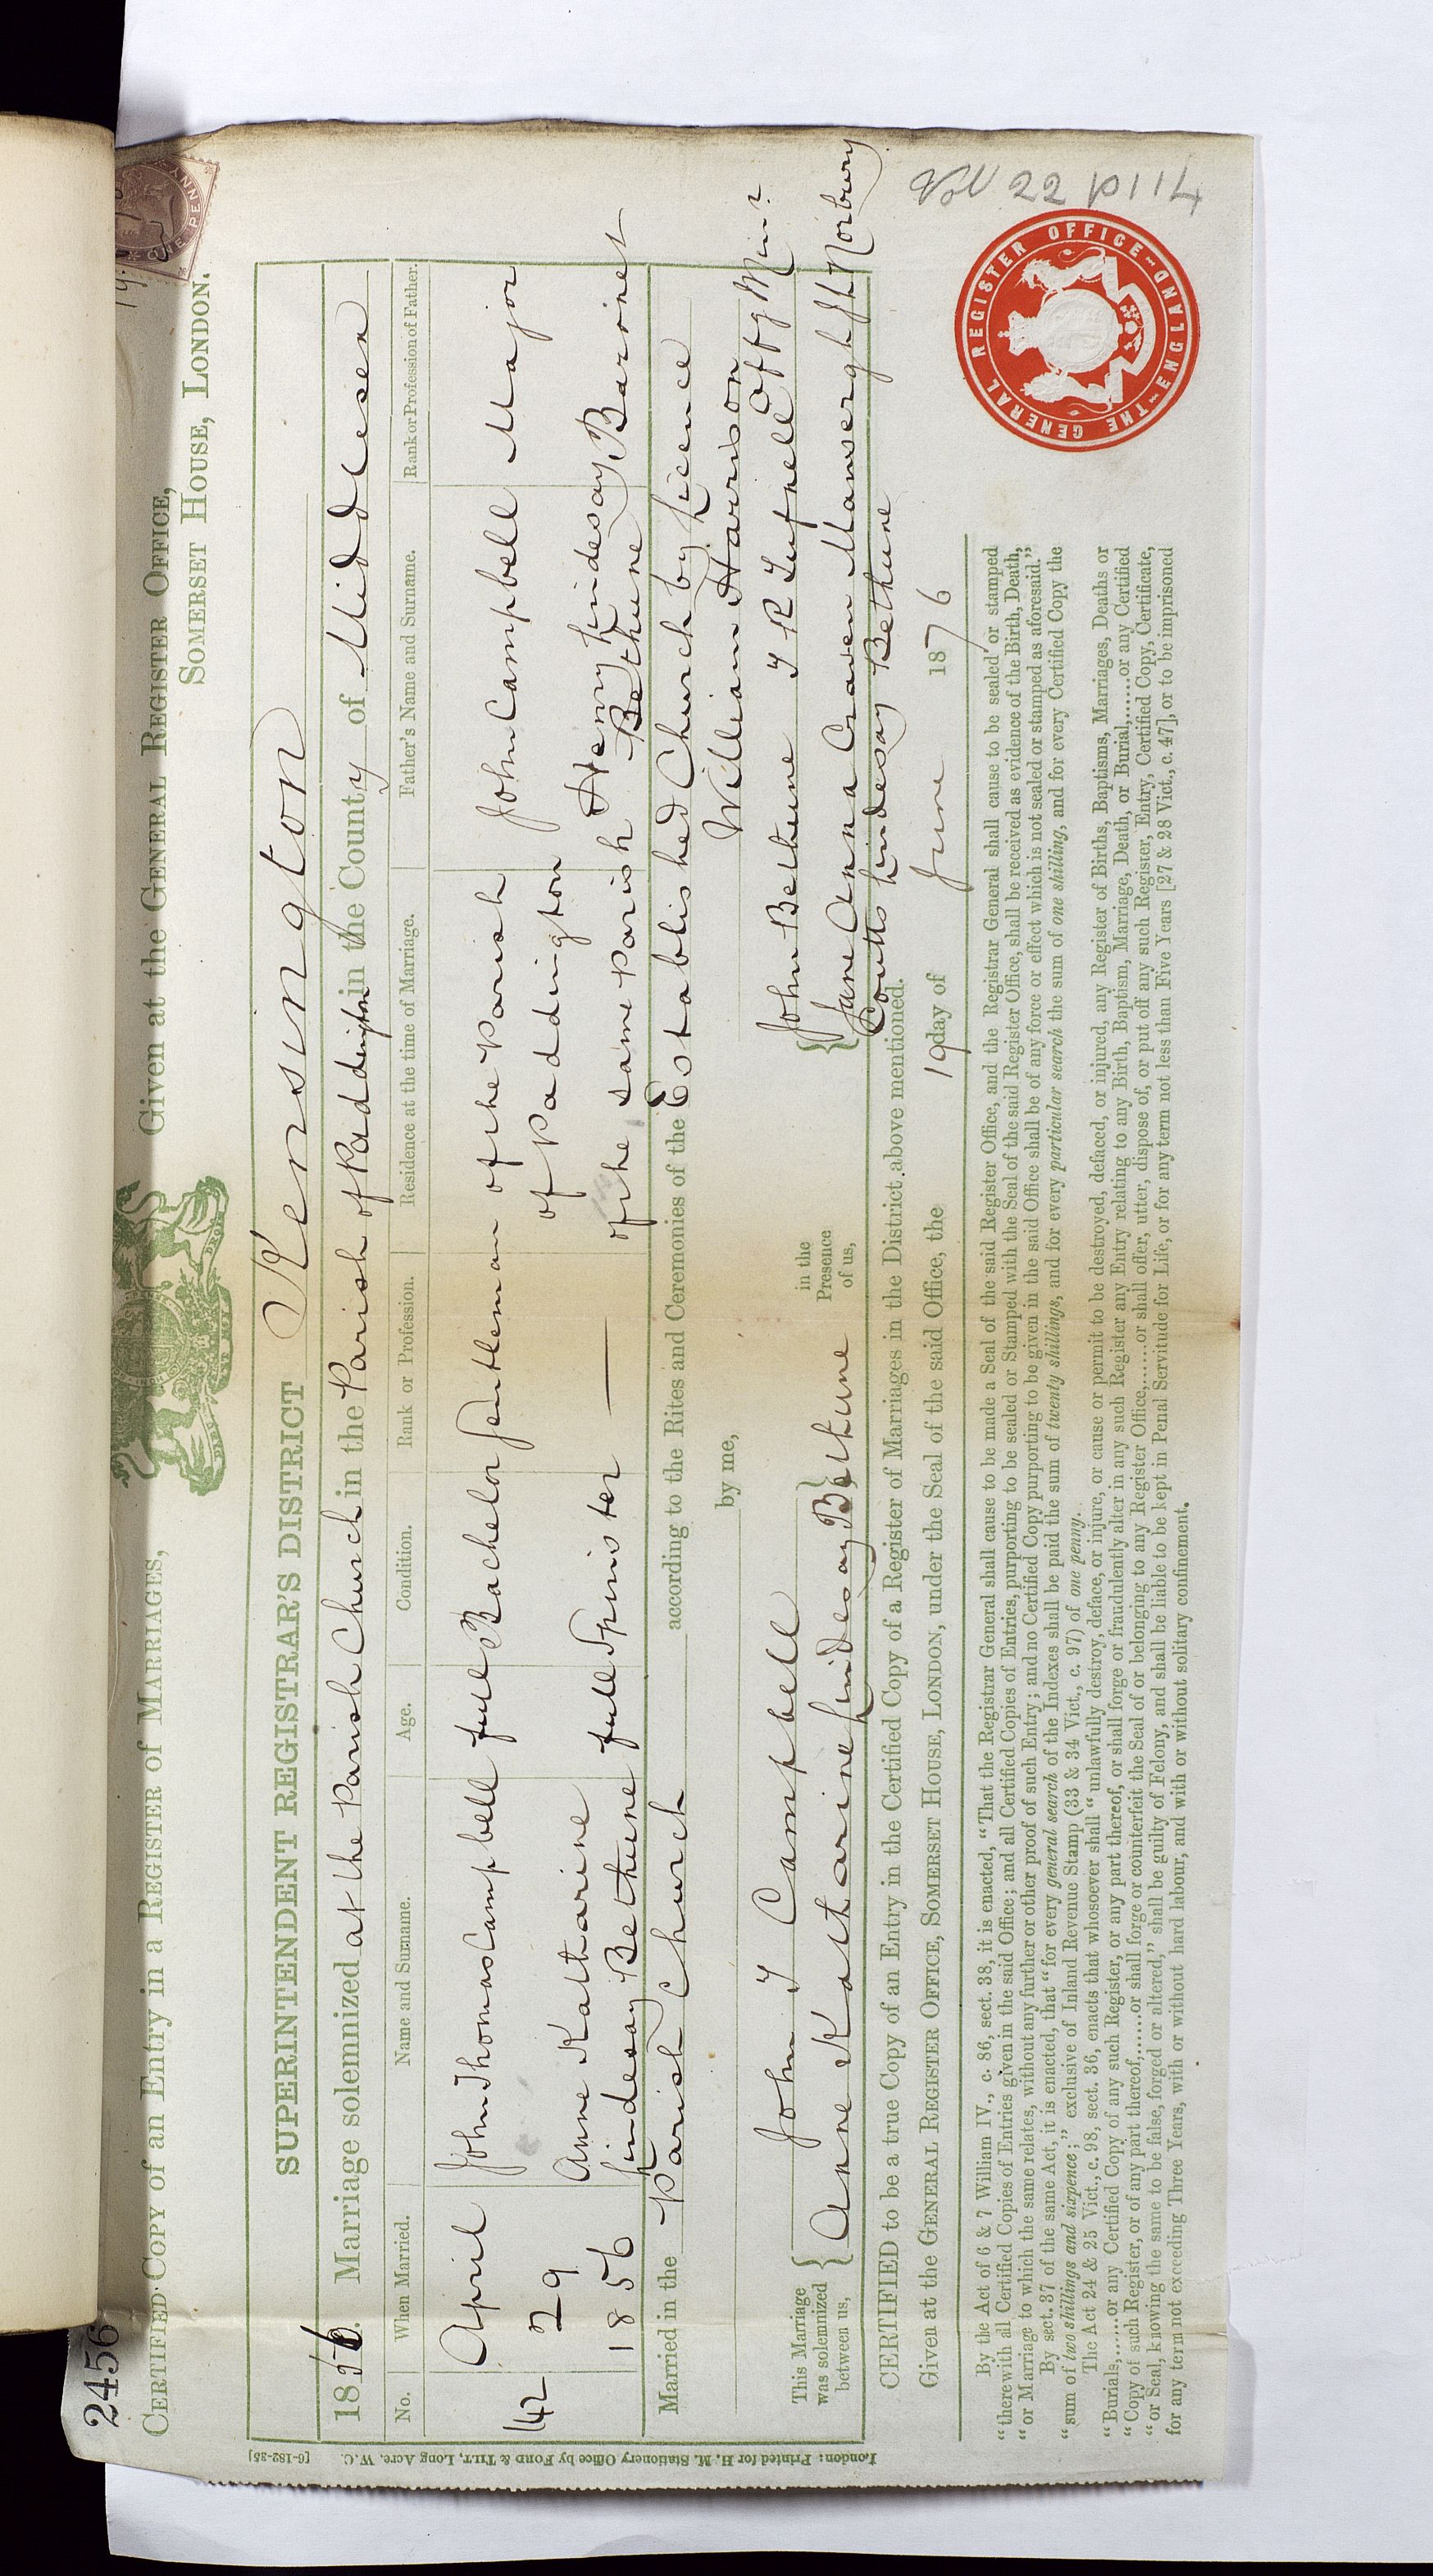 2456
CERTIFIED COPY of an Entry in a REGISTER OF MARRIAGES, Given at the GENERAL REGISTER OFFICE,
SOMERSET HOUSE, LONDON.
ONE PENNY
SUPERINTENDENT REGISTRAR'S DISTRICT Kensington
1856. Marriage solemnized at the Parish Church in the Parish of Paddington in the County of Middlesex
No. When Married. Name and Surname. Age. Condition. Rank or Profession. Residence at the time of Marriage. Father's Name and Surname. Rank or Profession of Father.
142 April 29 1856 John Thomas Campbell full Bachelor Gentleman of the Parish of Paddington John Campbell Major
Anne Katharine Lindesay Bethune full Spinster — of the same Parish Henry Lindesay Bethune Baronet
Married in the Parish Church according to the Rites and Ceremonies of the Established Church by Licence
by me, William Harrison Offg Minr
This Marriage was solemnized between us, { John T Campbell
Anne Katharine Lindesay Bethune }
in the Presence of us, { John Bethune T R Tufnell
Jane Anna Craven Mansergh H Norbury
Coutts Lindesay Bethune
CERTIFIED to be a true Copy of an Entry in the Certified Copy of a Register of Marriages in the District above mentioned.
Given at the GENERAL REGISTER OFFICE, SOMERSET HOUSE, LONDON, under the Seal of the said Office, the 19 day of June 1876
By the Act of 6 & 7 William IV., c. 86, sect. 38, it is enacted, "That the Registrar General shall cause to be made a Seal of the said Register Office, and the Registrar General shall cause to be sealed or stamped
"therewith all Certified Copies of Entries given in the said Office; and all Certified Copies of Entries, purporting to be sealed or Stamped with the Seal of the said Register Office, shall be received as evidence of the Birth, Death,
"or Marriage to which the same relates, without any further or other proof of such Entry; and no Certified Copy purporting to be given in the said Office shall be of any force or effect which is not sealed or stamped as aforesaid."
By sect. 37 of the same Act, it is enacted, that "for every general search of the Indexes shall be paid the sum of twenty shillings, and for every particular search the sum of one shilling, and for every Certified Copy the
"sum of two shillings and sixpence;" exclusive of Inland Revenue Stamp (33 & 34 Vict., c. 97) of one penny.
The Act 24 & 25 Vict., c. 98, sect. 36, enacts that whosoever shall "unlawfully destroy, deface, or injure, or cause or permit to be destroyed, defaced, or injured, any Register of Births, Baptisms, Marriages, Deaths or
"Burials,......or any Certified Copy of any such Register, or any part thereof, or shall forge or fraudulently alter in any such Register any Entry relating to any Birth, Baptism, Marriage, Death, or Burial,......or any Certified
"Copy of such Register, or of any part thereof,......or shall forge or counterfeit the Seal of or belonging to any Register Office,......or shall offer, utter, dispose of, or put off any such Register, Entry, Certified Copy, Certificate,
"or Seal, knowing the same to be false, forged or altered," shall be guilty of Felony, and shall be liable to be kept in Penal Servitude for Life, or for any term not less than Five Years [27 & 28 Vict., c. 47], or to be imprisoned
for any term not exceeding Three Years, with or without hard labour, and with or without solitary confinement.
THE GENERAL REGISTER OFFICE ENGLAND
Vol 22 p 114
London: Printed for H. M. Stationery Office by FORD & TILT, Long Acre, W.C. [6-182-35]